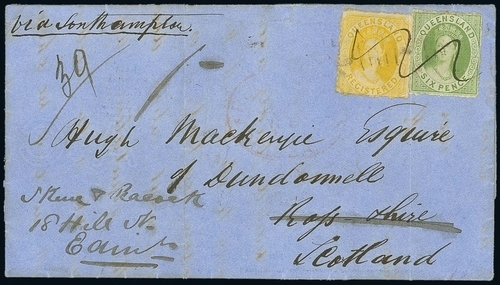 via Southampton.
39
1/-
QUEENSLAND
REGISTERED
QUEENSLAND
SIX PENCE
Hugh Mackenzie Esquire
of Dundonnell
Ross shire
Scotland
Skene & Peacock
18 Hill St.
Edinr